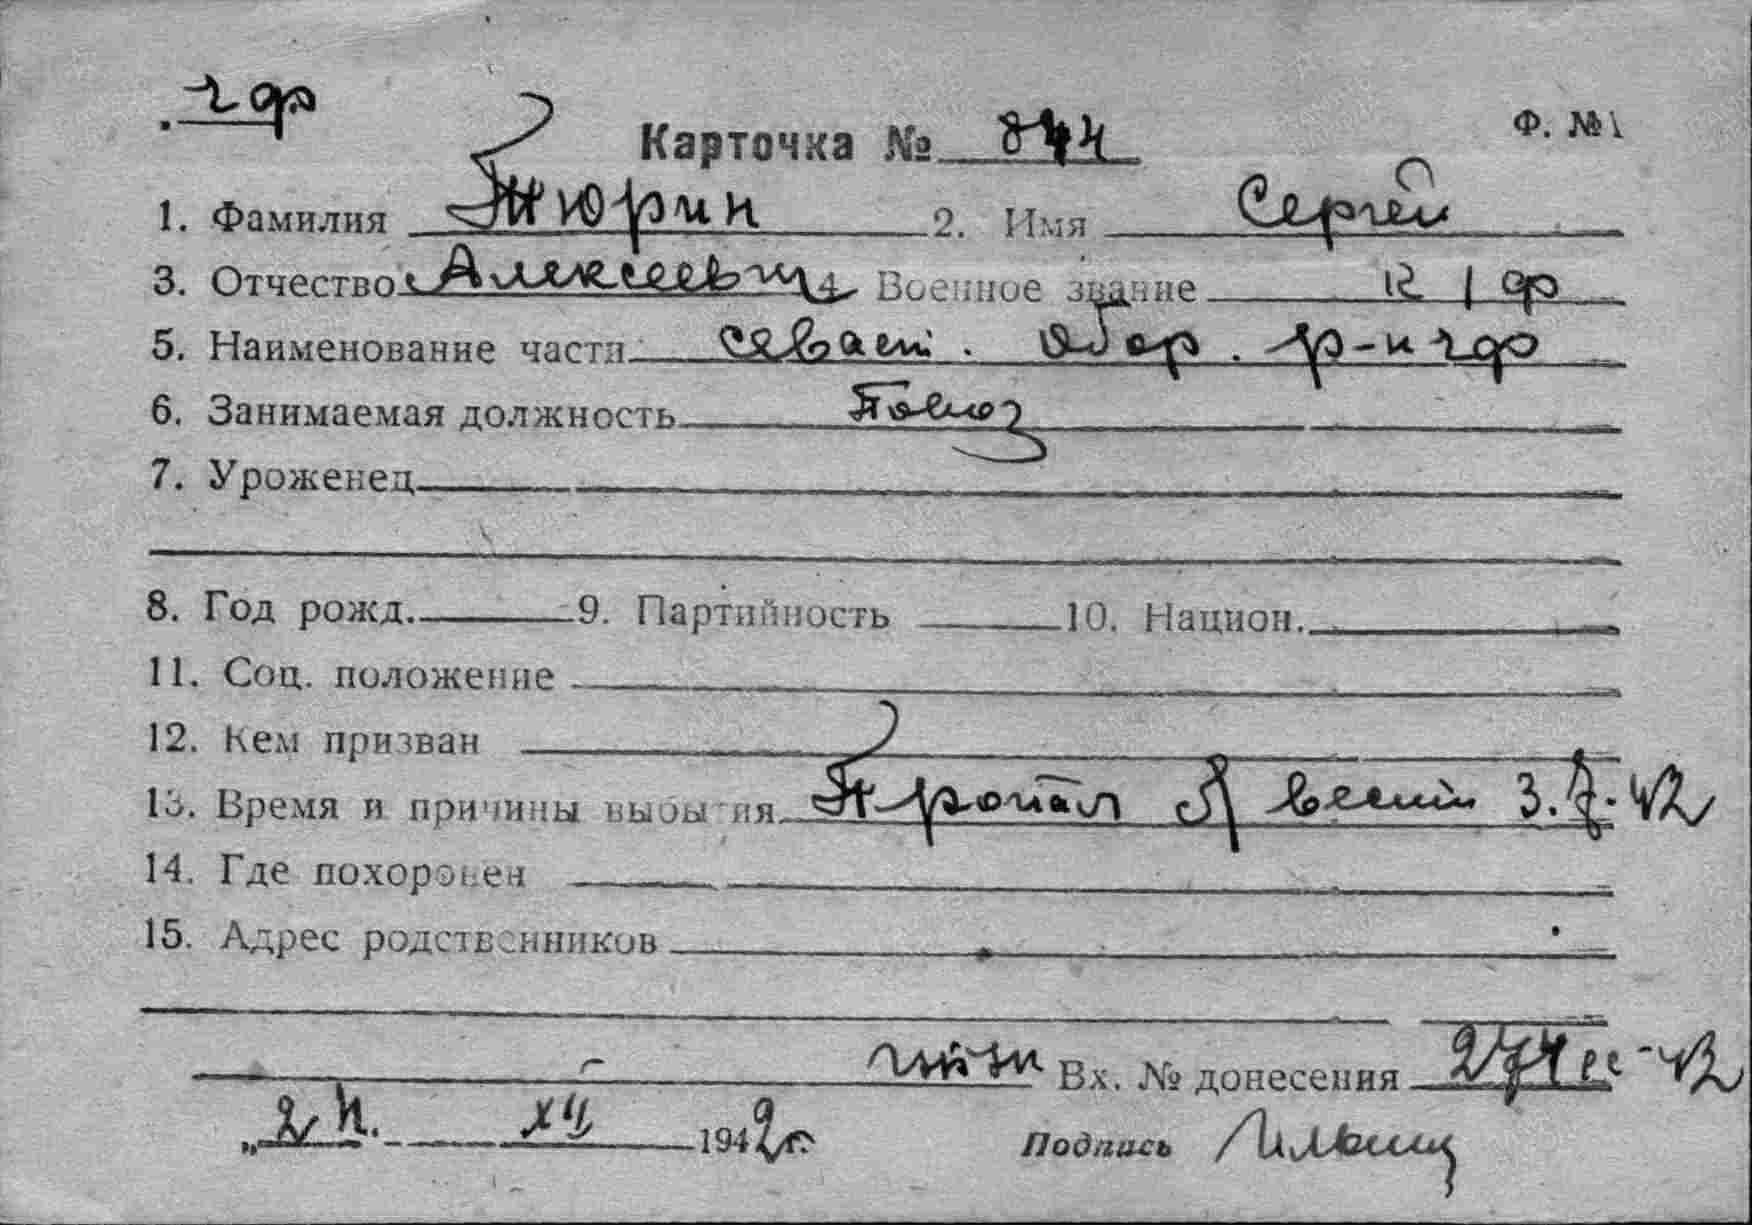 чф
Карточка № 844 Ф. №1
1. Фамилия Тюрин 2. Имя Сергей
3. Отчество Алексеевич 4. Военное звание к/ф
5. Наименование части Севаст. Обор. р-н чф
6. Занимаемая должность
7. Уроженец
8. Год рожд. 9. Партийность 10. Национ.
11. Соц. положение
12. Кем призван
13. Время и причины выбытия Пропал б/вести 3.7.42
14. Где похоронен
15. Адрес родственников
Вх. № донесения 274сс-42
„24. XII 1942г.
Подпись